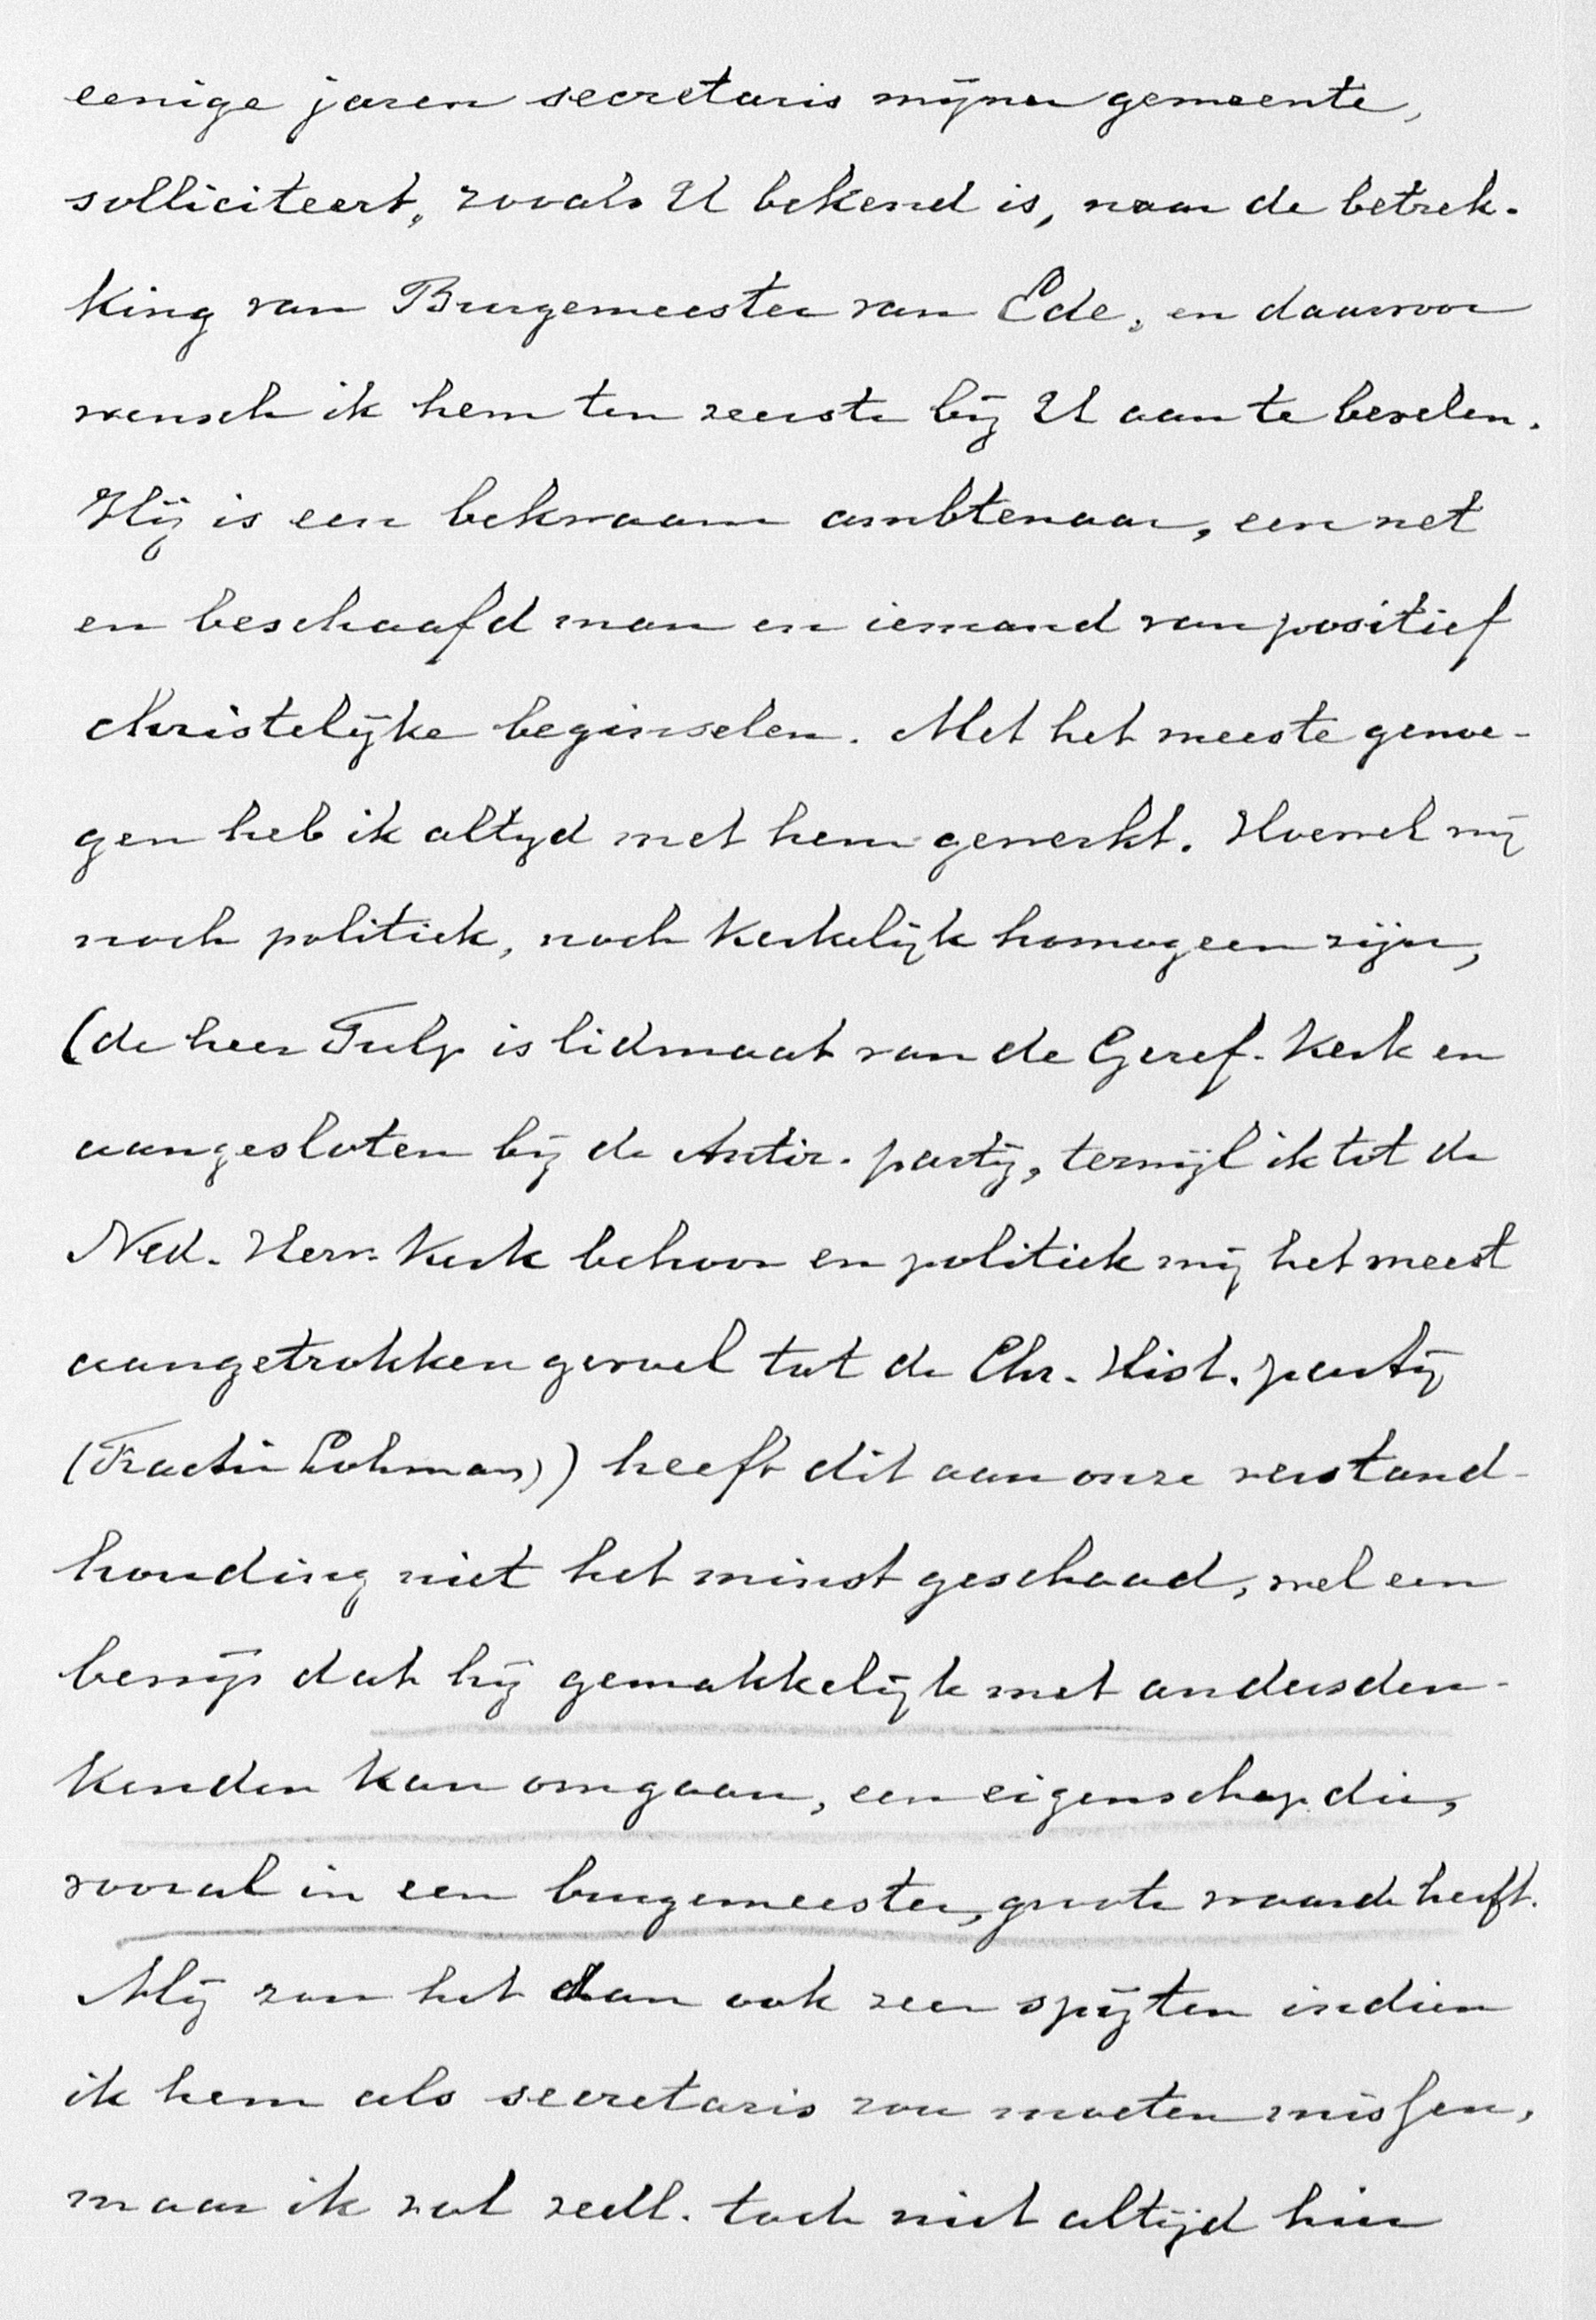 eenige jaren secretaris mijner gemeente,
solliciteert, zooals U bekend is, naar de betrek-
king van Burgemeester van Ede, en daarvoor
wensch ik hem ten zeerste bij U aan te bevelen.
Hij is een bekwaam ambtenaar, een net
en beschaafd man en iemand van positief
Christelijke beginselen. Met het meeste genoe-
gen heb ik altijd met hem gewerkt. Hoewel wij
noch politiek, noch kerkelijk homogeen zijn,
(de heer Tulp is lidmaat van de Geref. Kerk en
aangesloten bij de Antir. partij, terwijl ik tot de
Ned. Herv. Kerk behoor en politiek mij het meest
aangetrokken gevoel tot de Chr. Hist. partij
(Fractie Lohman)) heeft dit aan onze verstand-
houding niet het minst geschaad, wel een
bewijs dat hij gemakkelijk met andersden-
kenden kan omgaan, een eigenschap die,
vooral in een burgemeester, groote waarde heeft.
Mij zou het dan ook zeer spijten indien
ik hem als secretaris zou moeten missen,
maar ik zal zelf toch niet altijd hier